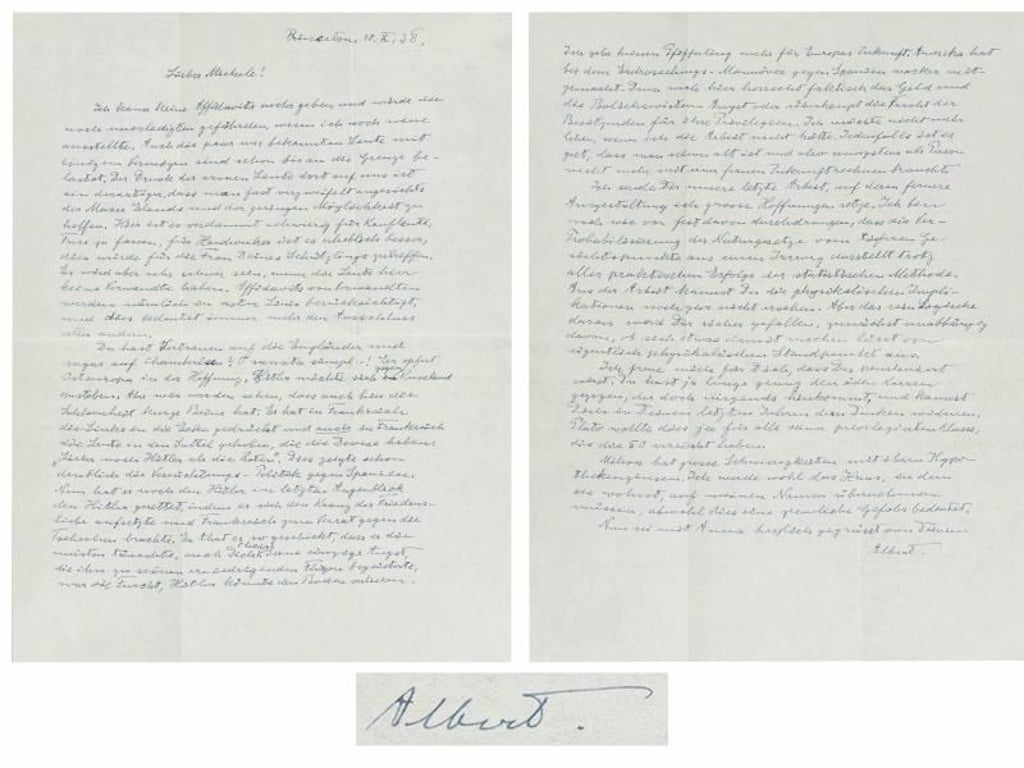 Princeton, 10. X. 38.
Lieber Michele!
Ich kann keine Affidavits mehr geben und würde die
noch unerledigten gefährden, wenn ich noch neue
ausstellte. Auch die paar uns bekannten Leute mit
einigem Vermögen sind schon bis an die Grenze be-
lastet. Der Druck der armen Leute dort auf uns ist
ein derartiger, dass man fast verzweifelt angesichts
der Masse Elends und der geringen Möglichkeit zu
helfen. Hier ist es verdammt schwierig für Kaufleute,
Fuss zu fassen, für Handwerker ist es erheblich besser,
dies würde für die Frau Deines Schützlings zutreffen.
Es wird aber sehr schwer sein, wenn die Leute hier
keine Verwandte haben. Affidavits von Verwandten
werden nämlich in erster Linie berücksichtigt,
und dies bedeutet immer mehr den Ausschluss
aller andern.
Du hast Vertrauen auf die Engländer und
sogar auf Chamberlain? O sancta simpl..! Er opfert
Osteuropa in der Hoffnung, Hitler möchte sich gegen Russland
austoben. Aber wir werden sehen, dass auch hier die
Schlauheit kurze Beine hat. Er hat in Frankreich
die Linke an die Wand gedrückt und auch in Frankreich
die Leute in den Sattel gehoben, die die Devise haben
"Lieber noch Hitler als die Roten". Dies zeigte schon
deutlich die Vernichtungs-Politik gegen Spanien.
Nun hat er noch den Hitler im letzten Augenblick
gerettet, indem er sich den Kranz der Friedens-
liebe aufsetzte und Frankreich zum Verrat gegen die
Tschechen brachte. Er that es so geschickt, dass er die
meisten täuschte, auch Dich (leider). Seine einzige Angst,
die ihn zu seinen erniedrigenden Flügen begeisterte,
war die Furcht, Hitler könnte den Boden verlieren.
Ich gebe keinen Pfifferling mehr für Europas Zukunft. Amerika hat
bei dem Erdrosselungs-Manöver gegen Spanien wacker mit-
gemacht. Denn auch hier herrscht faktisch das Geld und
die Bolschewisten Angst oder überhaupt die Furcht der
Besitzenden für ihre Privilegien. Ich möchte nicht mehr
leben, wenn ich die Arbeit nicht hätte. Jedenfalls ist es
gut, dass man schon alt ist und also wenigstens als Person
nicht mehr mit einer fernen Zukunft rechnen braucht.
Ich sende Dir unsere letzte Arbeit, auf deren fernere
Ausgestaltung ich grosse Hoffnungen setze. Ich bin
nach wie vor fest davon durchdrungen, dass die Ver-
Probabilisierung der Naturgesetze vom tieferen Ge-
sichtspunkte aus einen Irrweg darstellt trotz
aller praktischen Erfolge der statistischen Methode.
Aus der Arbeit kannst Du die physikalischen Impli-
kationen noch gar nicht ersehen. Aber das rein Logische
daran wird Dir sicher gefallen, zunächst unabhängig
davon, ob sich etwas damit machen lässt vom
eigentlich physikalischen Standpunkt aus.
Ich freue mich für Dich, dass Du pensioniert
wirst. Du hast ja lange genug den öden Karren
gezogen, der doch nirgends hinkommt, und kannst
Dich in Deinen letzten Jahren dem Denken widmen.
Plato wollte dies ja für alle seine privilegierten Klasse,
die die 50 erreicht haben.
haben grosse Schwierigkeiten mit ihren Hypo-
thekenzinsen. Ich werde wohl das Haus, in dem
sie wohnt, auf meinen Namen übernehmen
müssen, obwohl dies eine ziemliche Gefahr bedeutet.
Nun sei mit Anna herzlich gegrüsst von Deinem
Albert.
Albert.